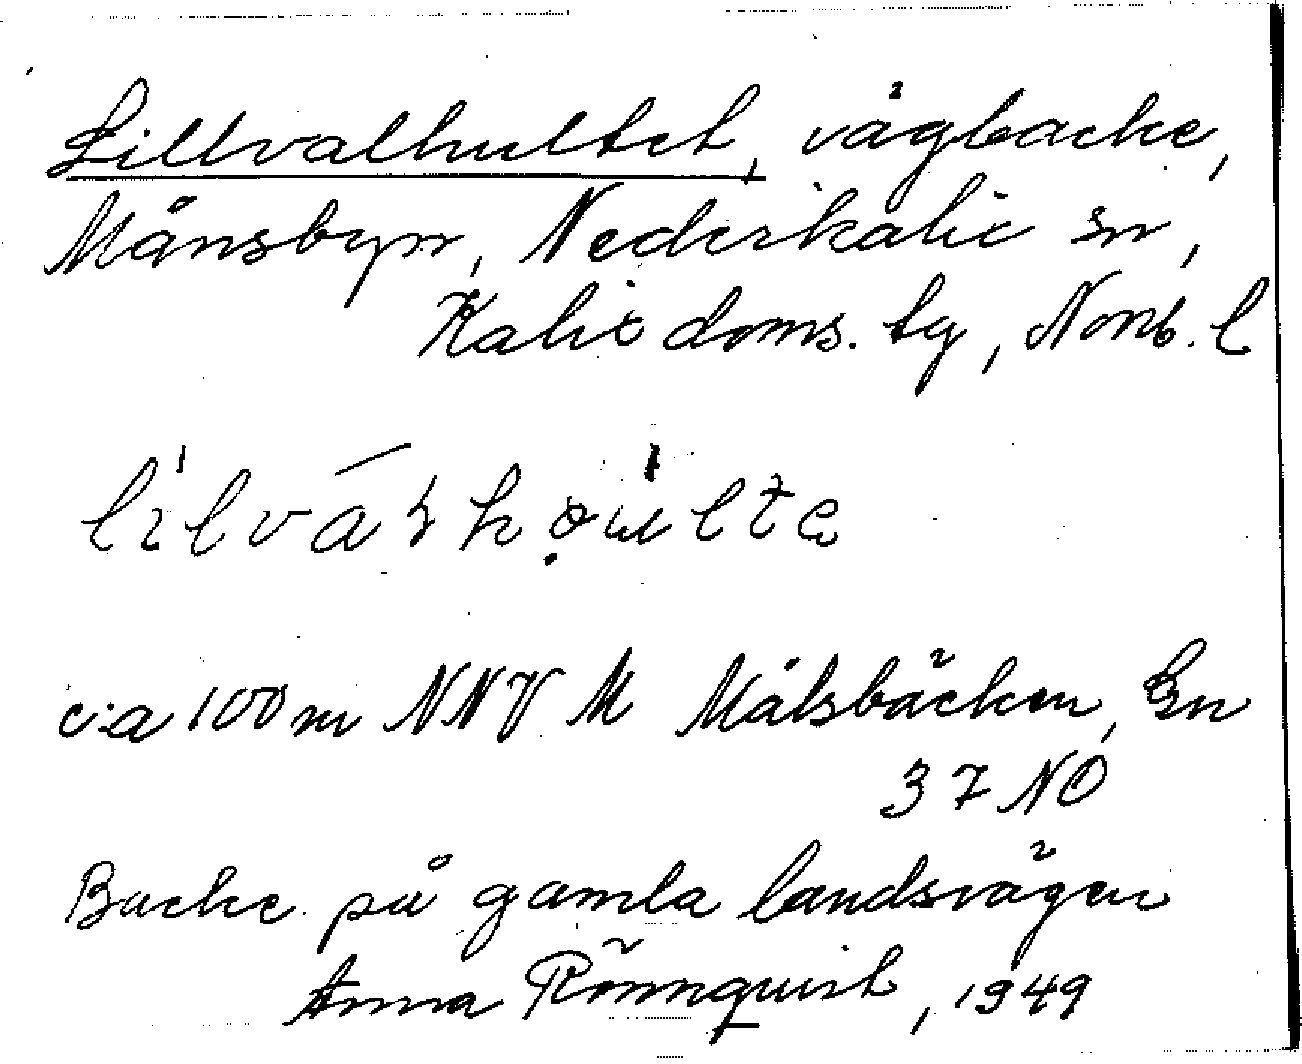 Lillvalhultet, vägbacke,
Månsbyn, Nederkalix sn,
Kalix doms. tg, Norrb. l
ca 100 m NNV M Målsbäcken, Gn
37 NO
Backe på gamla landsvägen
Anna Rönnquist, 1949